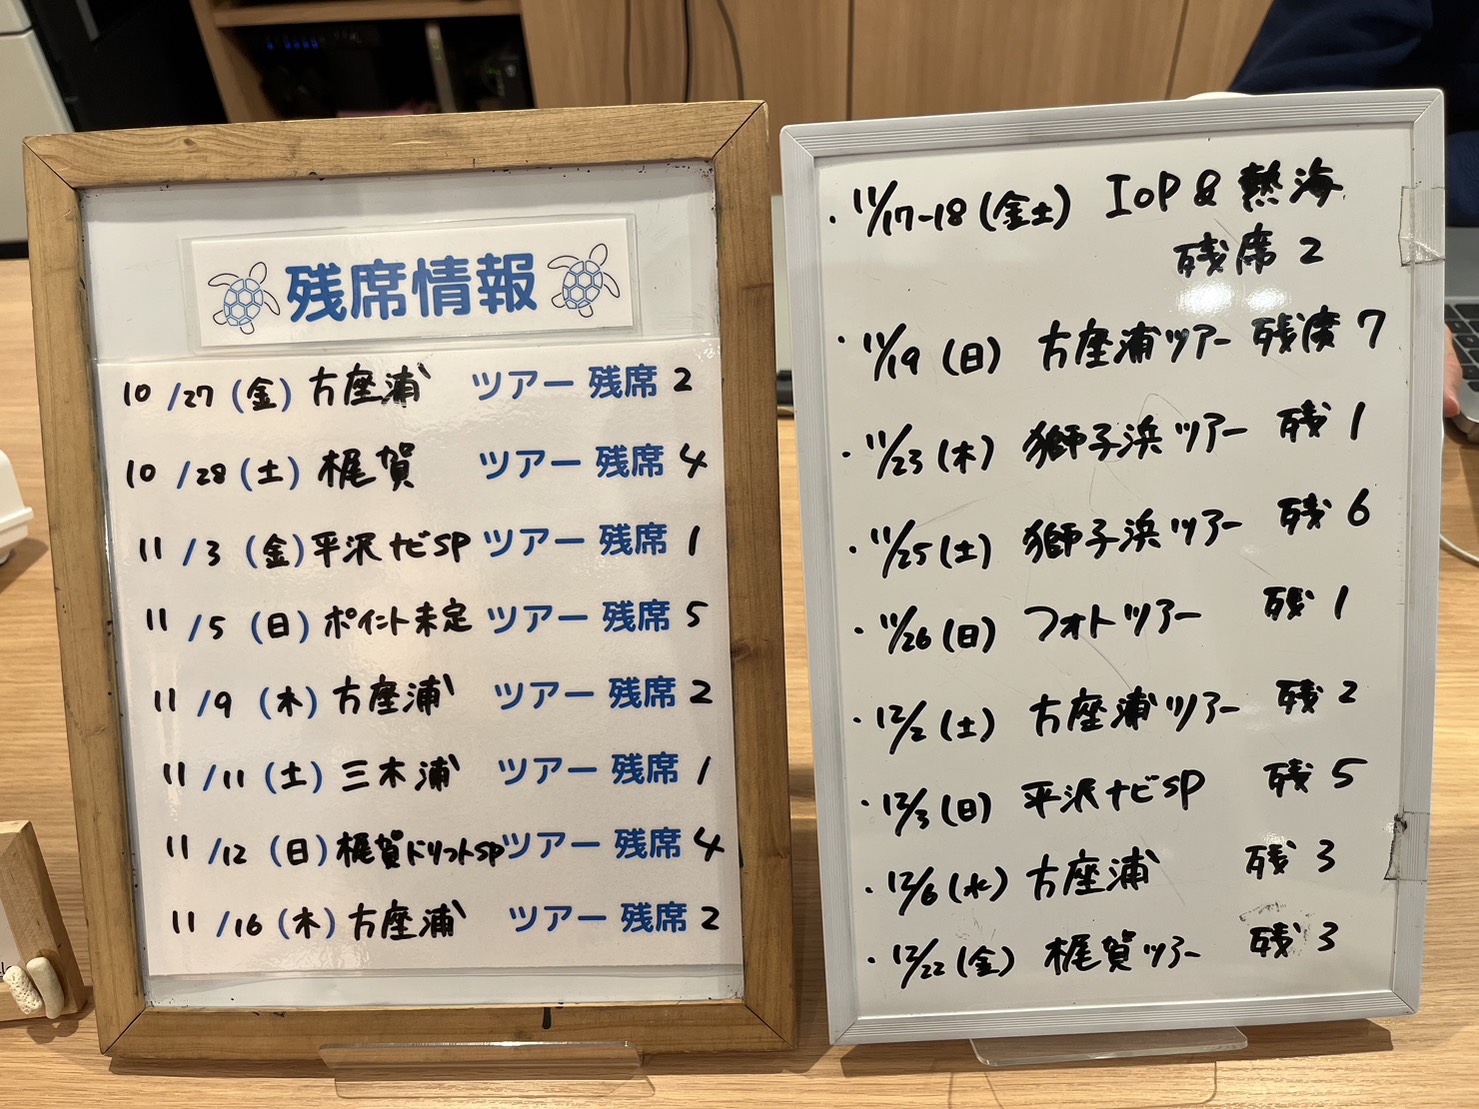 残席情報
10/27(金)方座浦 ツアー 残席 2
10/28(土)梶賀 ツアー 残席 4
11/3(金)平沢ナビSP ツアー 残席 1
11/5(日)ポイント未定 ツアー 残席 5
11/9(木)方座浦 ツアー 残席 2
11/11(土)三木浦 ツアー 残席 1
11/12(日)梶賀ドリフトSPツアー 残席 4
11/16(木)方座浦 ツアー 残席 2
・11/17-18(金土) IOP & 熱海
残席 2
・11/19(日) 方座浦ツアー 残席 7
・11/23(木) 獅子浜ツアー 残 1
・11/25(土) 獅子浜ツアー 残 6
・11/26(日) フォトツアー 残 1
・12/2(土) 方座浦ツアー 残 2
・12/3(日) 平沢ナビSP 残 5
・12/6(水) 方座浦 残 3
・12/22(金) 梶賀ツアー 残 3